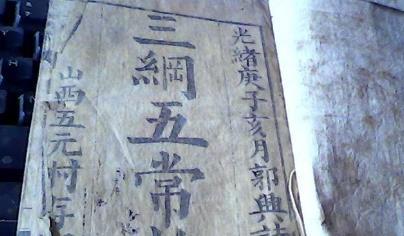 光緒庚子亥月郭興
三綱五常
山西五元